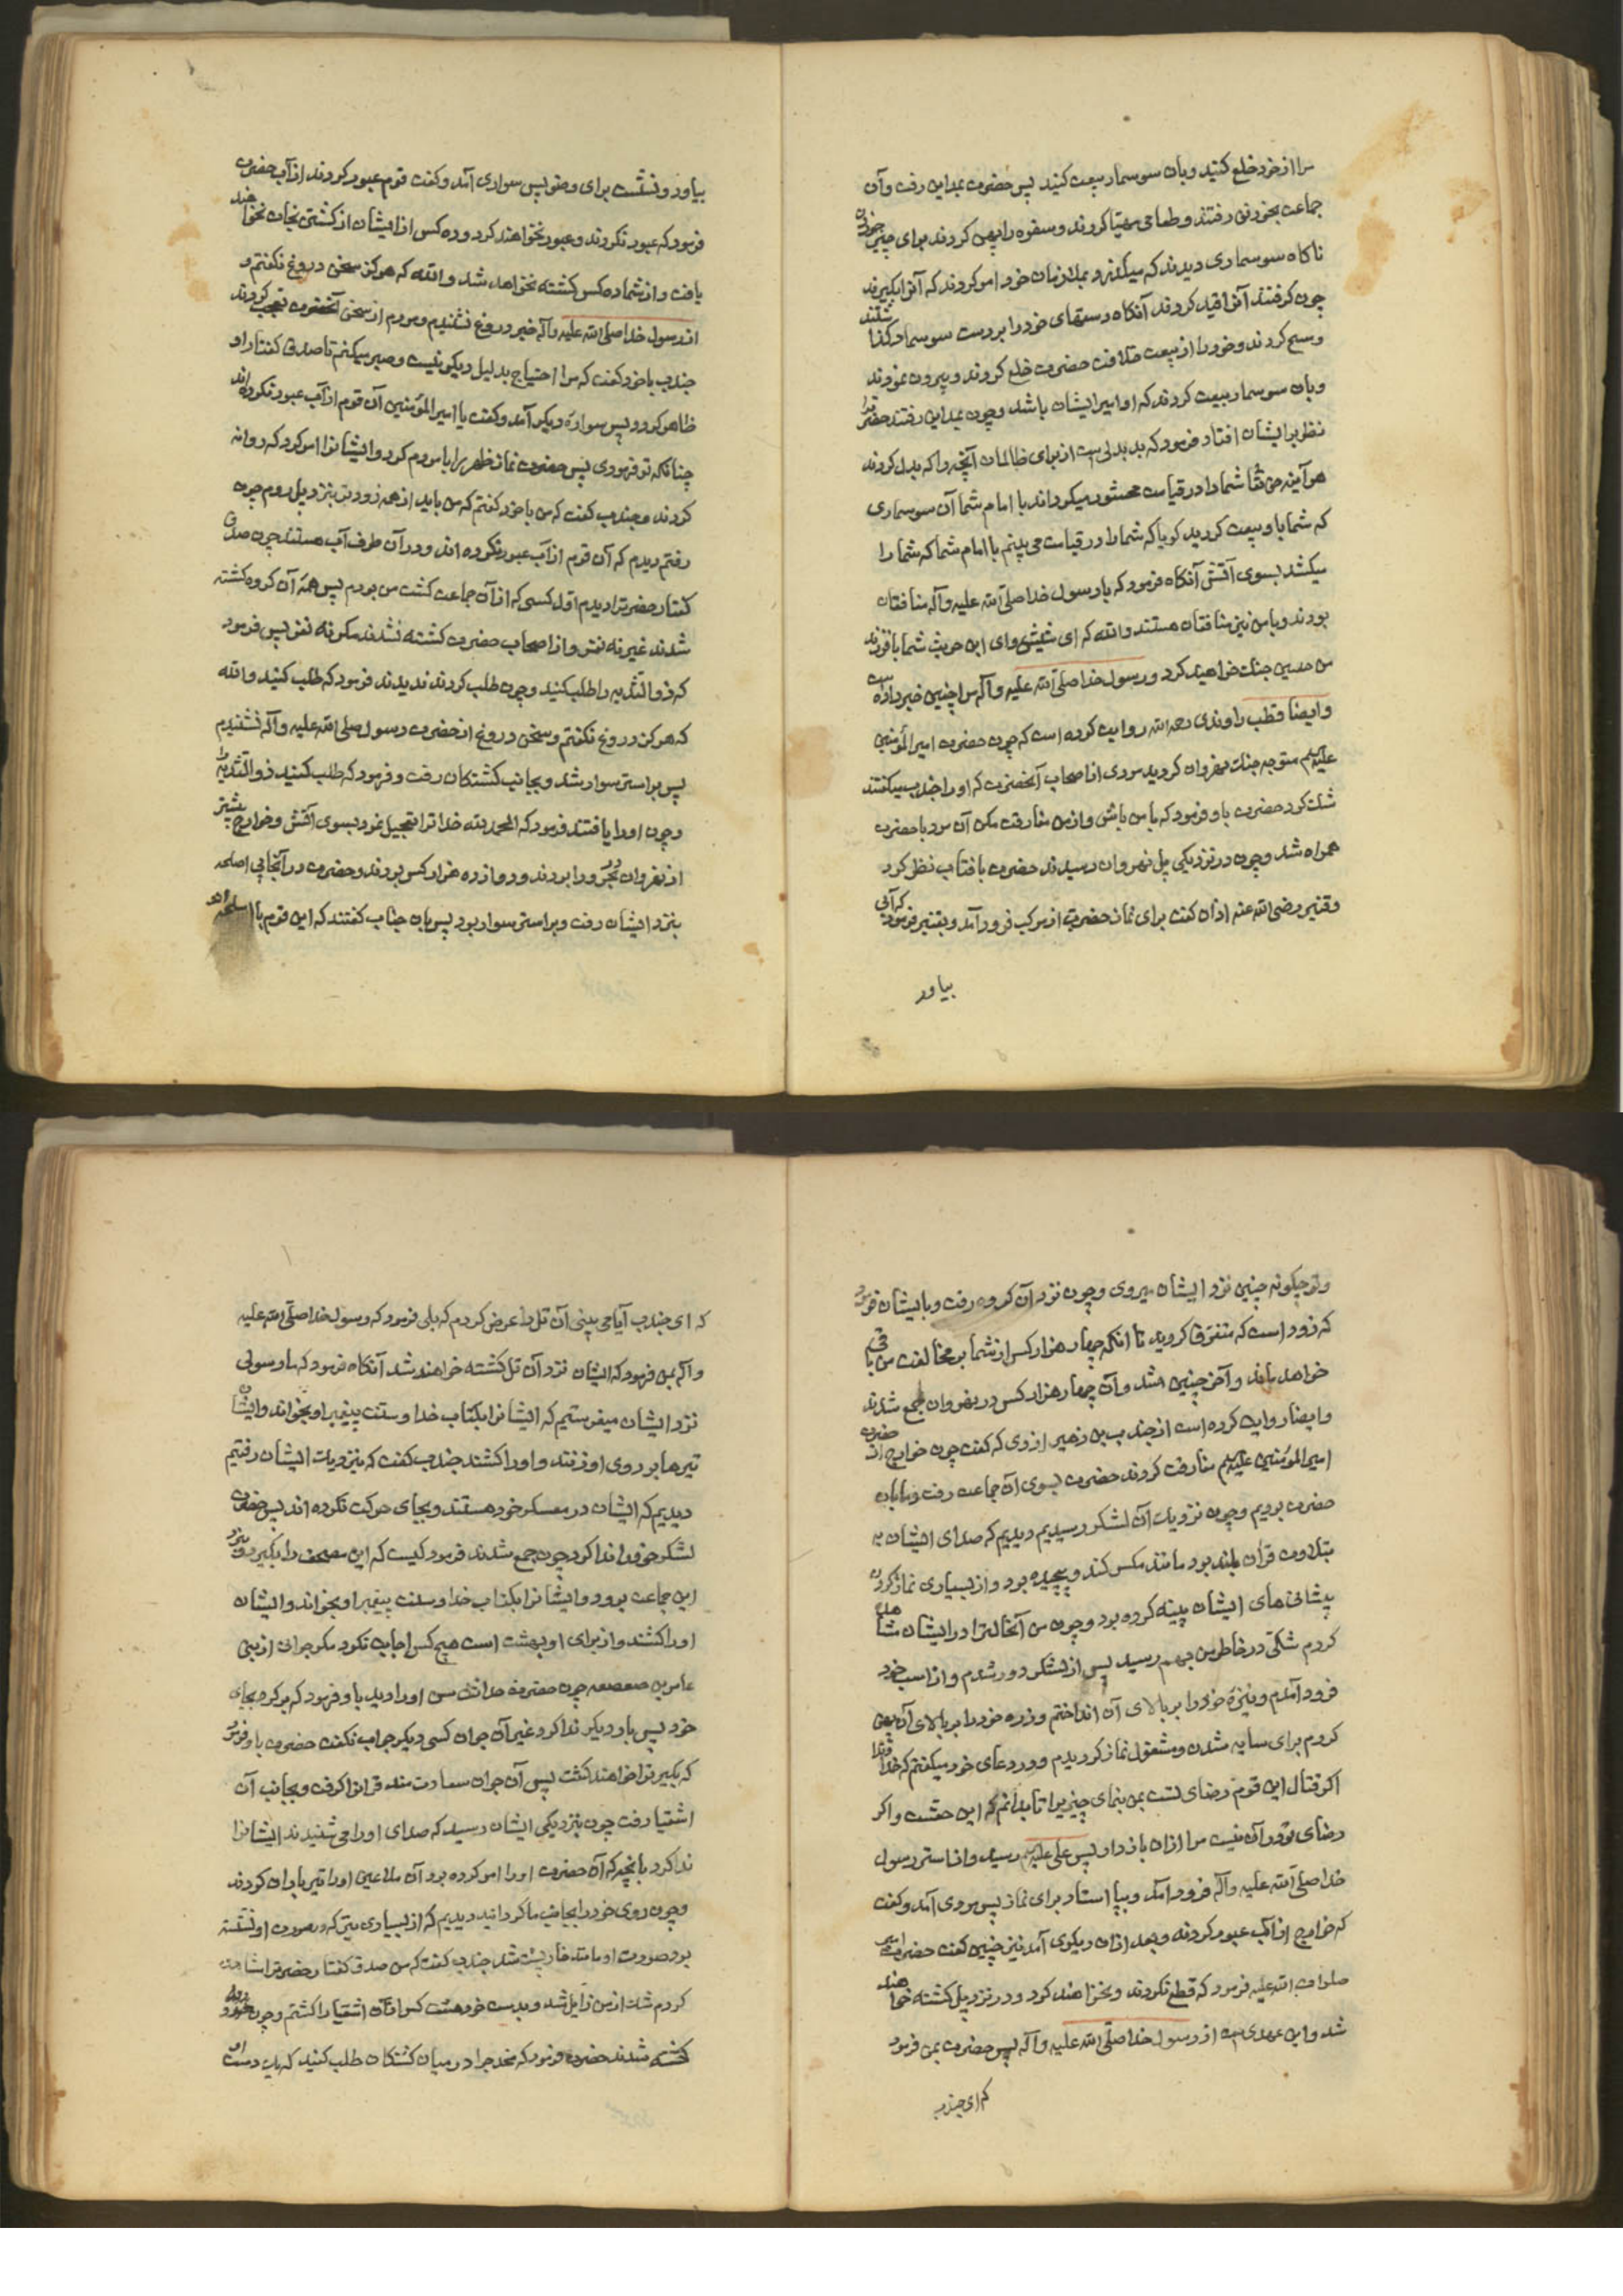 مرا از خود خلع کنید و بان سوسمار بیعت کنید پس حضرت بمداین رفت و آن
جماعت بخورنق رفتند و طعامی مهیا کردند و سفره را پهن کردند برای چیز خوردن
ناکاه سوسماری دیدند که میکذرد بملازمان خود امر کردند که آنرا بکیرند
چون کرفتند آنرا قید کردند آنکاه دستهای خود را بر دست سوسمار کذاشتند
و مسح کردند و خود را از بیعت خلافت حضرت خلع کردند و بیرون نمودند
و بان سوسمار بیعت کردند که او امیر ایشان باشد و چون بمداین رفتند حضرترا
نظر بر ایشان افتاد فرمود که بد بدلی است از برای ظالمان آنچه را که بدل کردند
هرآینه حق تعا شما را در قیامت محشور میکرداند با امام شما آن سوسماری
که شما باو بیعت کردید کویا که شما را در قیامت می بینم با امام شما که شما را
میکشد بسوی آتش آنکاه فرمود که با رسول خدا صلی الله علیه و آله منافقان
بودند و با من نیز منافقان هستند والله که ای شبث و ای ابن حریث شما با فرزند
من حسین جنک خواهید کرد و رسول خدا صلی الله علیه و آله مرا چنین خبر داده است
و ایضا قطب راوندی رحمه الله روایت کرده است که چون حضرت امیر المؤمنین
علیه السلام متوجه جنک نهروان کردید مردی از اصحاب آنحضرت که او را جندب میکفتند
شک کرد حضرت باو فرمود که با من باش و از من مفارقت مکن آن مرد با حضرت
همراه شد و چون در نزدیکی پل نهروان رسیدند حضرت بافتاب نظر کرد
و قنبر رضی الله عنه اذان کفت برای نماز حضرت از مرکب فرود آمد و بقنبر فرمود که آبی
بیاور
بیاور و نشست برای وضو پس سواری آمد و کفت قوم عبور کردند از آب حضرت
فرمود که عبور نکردند و عبور نخواهند کرد و ده کس از ایشان از کشتن نجات نخواهند
یافت و از شما ده کس کشته نخواهد شد والله که هرکز سخن دروغ نکفتم و
از رسول خدا صلی الله علیه و آله خبر دروغ نشنیدم و مردم از سخن آنحضرت تعجب کردند
جندب با خود کفت که مرا احتیاج بدلیل دیکر نیست و صبر میکنم تا صدق کفتار او
ظاهر کردد پس سواره دیکر آمد و کفت یا امیر المؤمنین آن قوم از آب عبور نکرده اند
چنانکه تو فرمودی پس حضرت نماز ظهر را با مردم کرد و ایشانرا امر کرد که روانه
کردند و جندب کفت که من با خود کفتم که من باید از همه زودتر بنزد پل روم چون
رفتم دیدم که آن قوم از آب عبور نکرده اند و در آن طرف آب هستند چون صدق
کفتار حضرترا دیدم اول کسی که از آن جماعت کشت من بودم پس همه آن کروه کشته
شدند غیر نه نفر و از اصحاب حضرت کشته نشدند مکر نه نفر پس فرمود
که ذو الثدیه را طلب کنید و چون طلب کردند ندیدند فرمود که طلب کنید والله
که هرکز دروغ نکفتم و سخن دروغ از حضرت رسول صلی الله علیه و آله نشنیدم
پس بر استر سوار شد و بجانب کشتکان رفت و فرمود که طلب کنید ذو الثدیه را
و چون او را یافتند فرمود که الحمد لله خدا ترا تعجیل نمود بسوی آتش و خوارج پیشتر
از نهروان در حرورا بودند و دوازده هزار کس بودند و حضرت در آنجا بی اسلحه
بنزد ایشان رفت و بر استر سوار بود پس بان جناب کفتند که این قوم با اسلحه اند
و تو چکونه چنین نزد ایشان میروی و چون نزد آن کروه رفت و بایشان فرمود
که زود است که متفرق کردید تا آنکه چهار هزار کس از شما بر مخالفت من باقی
خواهد ماند و آخر چنین شد و آن چهار هزار کس در نهروان جمع شدند
و ایضا روایت کرده است از جندب بن زهیر ازدی که کفت چون خوارج از حضرت
امیر المؤمنین علیه السلام مفارقت کردند حضرت بسوی آن جماعت رفت و ما بان
حضرت بودیم و چون نزدیک آن لشکر رسیدیم دیدیم که صدای ایشان به
بتلاوت قرآن بلند بود مانند مکس کند و پیچیده بود و از بسیاری نماز کردن
پیشانی های ایشان پینه کرده بود و چون من آنحالترا در ایشان مشاهده
کردم شکی در خاطر من بهم رسید پس از لشکر دور شدم و از اسب خود
فرود آمدم و نیزه خود را بر بالای آن انداختم و زره خود را بر بالای آن پهن
کردم برای سایه شدن و مشغول نماز کردیدم و در دعای خود میکفتم که خداوندا
اکر قتال این قوم رضای تست بمن بنمای چیزیرا تا بدانم که این حقست و اکر
رضای تو در آن نیست مرا از ان باز دار پس علی علیه السلام رسید و از استر رسول
خدا صلی الله علیه و آله فرود آمد و بپا استاد برای نماز پس مردی آمد و کفت
که خوارج از آب عبور کردند و بعد از ان دیکری آمد نیز چنین کفت حضرت امیر
صلوات الله علیه فرمود که قطع نکردند و نخواهند کرد و در نزد پل کشته خواهند
شد و این عهدی است از رسول خدا صلی الله علیه و آله پس حضرت بمن فرمود
که ای جندب
که ای جندب آیا می بینی آن تل را عرض کردم که بلی فرمود که رسول خدا صلی الله علیه
و آله بمن فرمود که ایشان نزد آن تل کشته خواهند شد آنکاه فرمود که ما رسولی
نزد ایشان میفرستیم که ایشانرا بکتاب خدا و سنت پیغمبر او بخواند و ایشان
تیرها بر روی او زنند و او را کشند جندب کفت که بنزدیک ایشان رفتیم
دیدیم که ایشان در معسکر خود هستند و بجای حرکت نکرده اند پس حضرت
لشکر خود را ندا کرد چون جمع شدند فرمود کیست که این مصحف را بکیرد و نزد
این جماعت برود و ایشانرا بکتاب خدا و سنت پیغمبر او بخواند و ایشان
او را کشند و از برای او بهشت است هیچ کس اجابت نکرد مکر جوانی از بنی
عامر بن صعصعه چون حضرت حداثت سن او را دید باو فرمود که برکرد بجای
خود پس بار دیکر ندا کرد غیر آن جوان کسی دیکر جواب نکفت حضرت باو فرمود
که بکیر ترا خواهند کشت پس آن جوان سعادت مند قرآنرا کرفت و بجانب آن
اشقیا رفت چون بنزدیکی ایشان رسید که صدای او را می شنیدند ایشانرا
ندا کرد بانچه که آن حضرت او را امر کرده بود آن ملاعین او را تیر باران کردند
و چون روی خود را بجانب ما کردانید دیدیم که از بسیاری تیر که بصورت او نشسته
بود صورت او مانند خارپشت شد جندب کفت که من صدق کفتار حضرترا مشاهده
کردم شک از من زایل شد و بدست خود هشت کس از آن اشقیا را کشتم و چون همه
کشته شدند حضرت فرمود که مخدج را در میان کشتکان طلب کنید که یک دست او